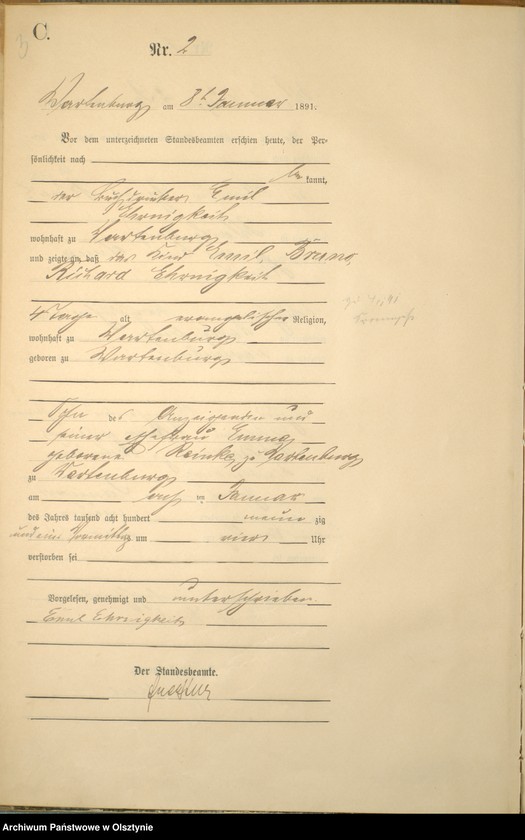 C.
3
Nr. 2
Wartenburg am 8ten Januar 1891.
Vor dem unterzeichneten Standesbeamten erschien heute, der Per-
sönlichkeit nach
bekannt,
der Buchdrucker Emil
Ehrnigkeit
wohnhaft zu Wartenburg
und zeigte an, daß das Kind Emil, Bruno,
Richard Ehrnigkeit
4 Tage alt evangelischer Religion,
wohnhaft zu Wartenburg
geboren zu Wartenburg
Sohn des Anzeigenden und
seiner Ehefrau Emma,
geborene Reinke zu Wartenburg
zu Wartenburg
am acht ten Januar
des Jahrs tausend acht hundert neun zig
und eins Vormittags um vier Uhr
verstorben sei
Vorgelesen, genehmigt und unterschrieben
Emil Ehrnigkeit
Der Standesbeamte.
Archiwum Państwowe w Olsztynie